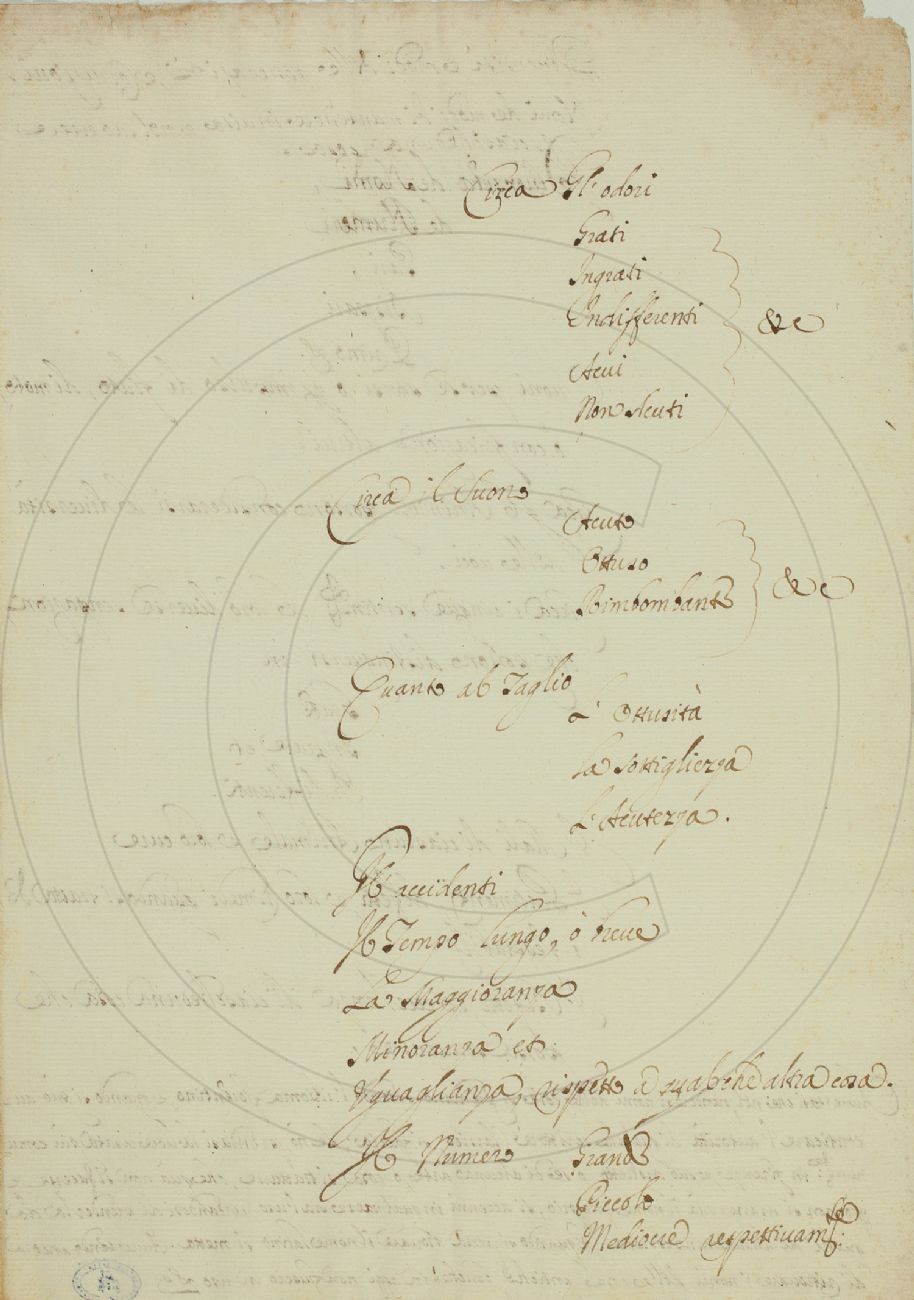 Circa Gl' odori
Grati
Ingrati
Indifferenti
&c
Acui
Non Acuti
Circa il Suono
Acuto
Ottuso
&c
Rimbombante
Quanto al Taglio
L' Ottusità
La sottigliezza
L' Acutezza.
Gl' accidenti
Il Tempo lungo, ò breue
La Maggioranza
Minoranza et
Vguaglianza, rispetto a qualche altra cosa.
Il Numero Grande
Piccolo
Mediocre respettiuamte: